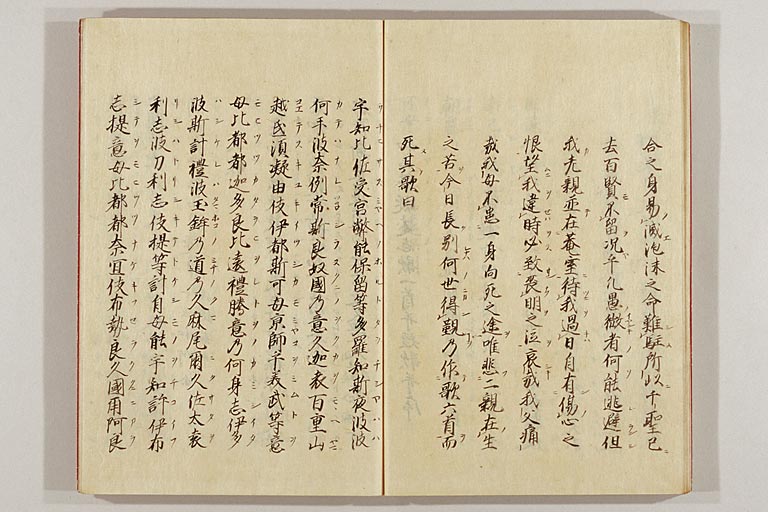 合之身易滅泡沫之命難駐所以千聖已
去百賢不留況乎凡愚微者何能逃避但
我老親並在菴室待我過日自有傷心之
恨望我違時必致喪明之泣哀哉我父痛
哉我母不患一身向死之途唯悲二親在生
之苦今日長別何世得覲乃作歌六首而
死其歌曰
宇知比佐受宮弊能保留等多羅知斯夜波波
何手波奈例常斯良奴國乃意久迦袁百重山
越弖須凝由伎伊都斯可母京師乎美武等意
母比都都迦多良比遠禮騰意乃何身志伊多
波斯計禮波玉鉾乃道乃久麻尾爾久佐太袁
利志波刀利志伎提等計自母能宇知許伊布
志提意母比都都奈宜伎布勢良久國用阿良